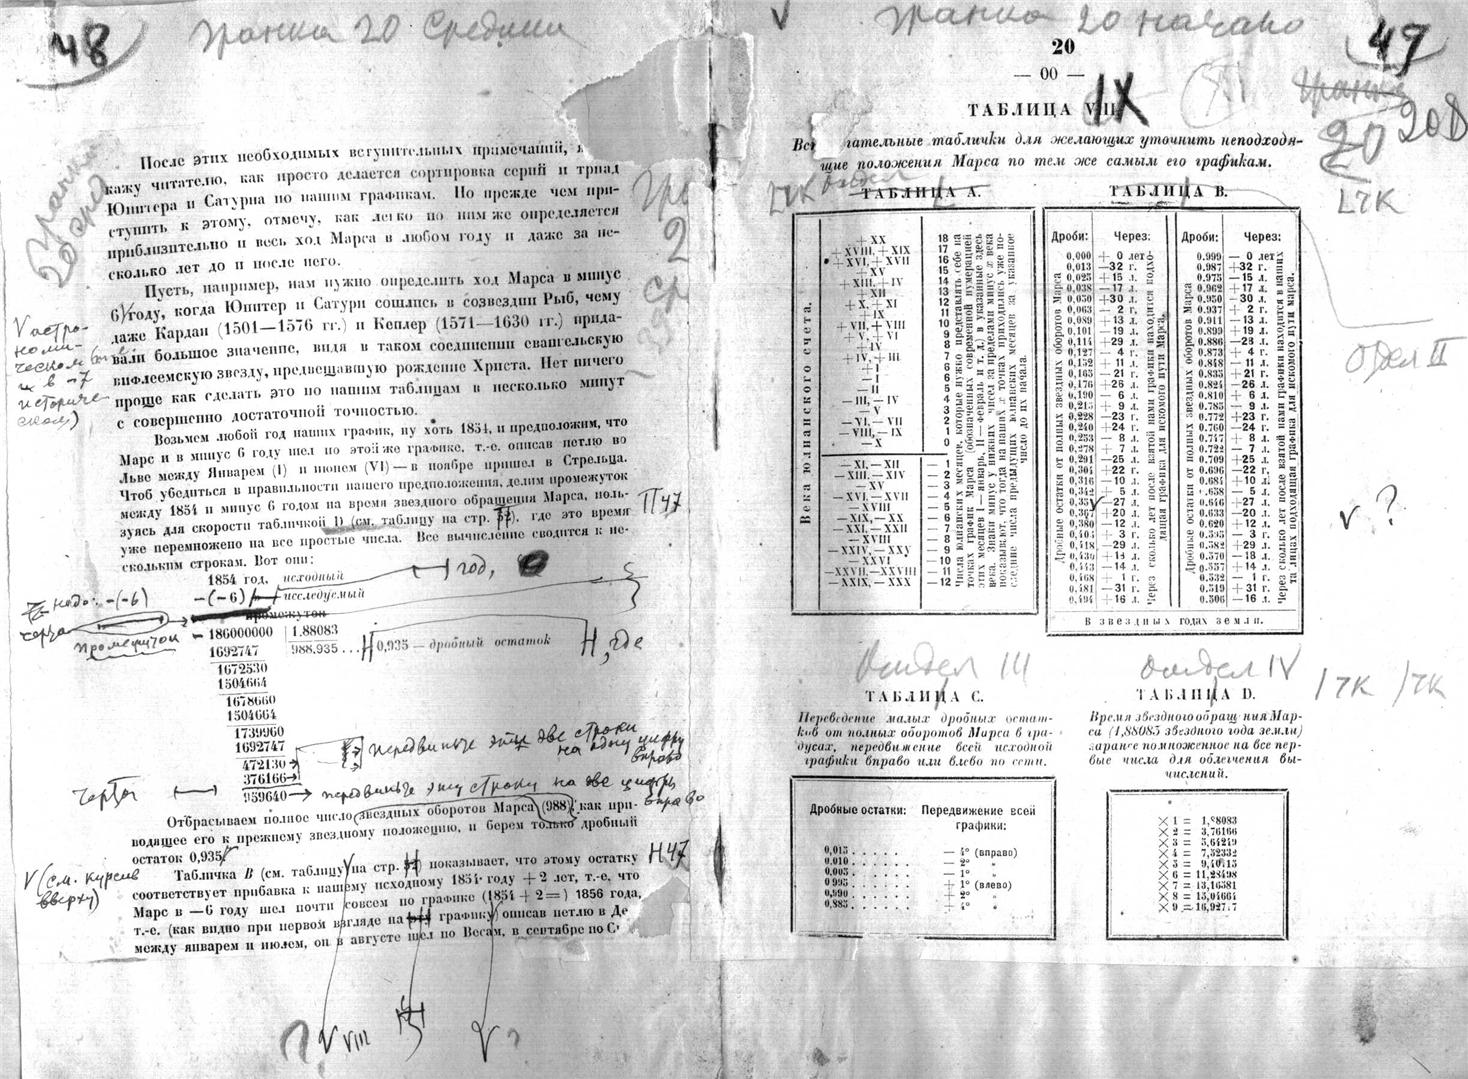 48
Гранка 20 Средина
После этих необходимых вступительных примечаний,
кажу читателю, как просто делается сортировка серий и триад
Юпитера и Сатурна по нашим графикам. Но прежде чем при-
ступить к этому, отмечу, как легко по ним же определяется
приблизительно и весь ход Марса в любом году и даже за не-
сколько лет до и после него.
Пусть, например, нам нужно определить ход Марса в минус
6 году, когда Юпитер и Сатурн сошлись в созвездии Рыб, чему
даже Кардан (1501—1576 гг.) и Кеплер (1571—1630 гг.) прида-
вали большое значение, видя в таком соединении евангельскую
вифлеемскую звезду, предвещавшую рождение Христа. Нет ничего
проще как сделать это по нашим таблицам в несколько минут
с совершенно достаточной точностью.
Возьмем любой год наших график, ну хоть 1854, и предположим, что
Марс и в минус 6 году шел по этой же графике, т.-е. описав петлю во
Льве между Январем (I) и июнем (VI) — в ноябре пришел в Стрельца.
Чтоб убедиться в правильности нашего предположения, делим промежуток
между 1854 и минус 6 годом на время звездного обращения Марса, поль-
зуясь для скорости табличкой D (см. таблицу на стр. где это время
уже перемножено на все простые числа. Все вычисление сводится к не-
скольким строкам. Вот они:
1854 год, исходный
год,
— (—6) исследуемый
надо: —(—6)
промежуток
черта
промежуток
— 186000000 | 1.88083
1692747 988,935 . . . 0,935 — дробный остаток
Н, где
1672530
1504664
1678660
1504664
1739960
1692747
472130
376166
959640
передвиньте эти две строки
на одну цифру
вправо
черта
передвиньте эту строку на две цифры
вправо
Отбрасываем полное число звездных оборотов Марса (988), как при-
водящее его к прежнему звездному положению, и берем только дробный
остаток 0,935
Табличка B (см. таблицу на стр. показывает, что этому остатку
соответствует прибавка к нашему исходному 1854 году + 2 лет, т.-е. что
Марс в —6 году шел почти совсем по графике (1854 + 2 =) 1856 года,
т.-е. (как видно при первом взгляде на графику) описав петлю в Де
между январем и июлем, он в августе шел по Весам, в сентябре по С
V астро-
номи-
ческом
и в -7
историче-
ском)
П47
Н47
V (см. курсив
вверху)
V VIII
V ?
49
Гранка 20 начало
20
— 00 —
ТАБЛИЦА IX
20
20В
Вс гательные таблички для желающих уточнить неподходя-
щие положения Марса по тем же самым его графикам.
отдел
ТАБЛИЦА А.
Века юлианского счета.
+ XX 18
+ XVIII, + XIX 17
+ XVI, + XVII 16
+ XV 15
+ XIII, + IV 14
+ XII 13
+ X, + XI 12
+ IX 11
+ VII, + VIII 10
+ V, + VI 9
+ IV 8
+ IV, + III 7
+ I 6
— I 6
— II 5
— III, — IV 4
— V 3
— VI, — VII 2
— VIII, — IX 1
— X 0
— XI, — XII — 1
— XIII, — XIV — 2
— XV — 3
— XVI, — XVII — 4
— XVIII — 5
— XIX, — XX — 6
— XXI, — XXII — 7
— XVIII — 8
— XXIV, — XXV — 9
— XXVI — 10
— XXVII, — XXVIII — 11
— XXIX, — XXX — 12
Числа юлианских месяцев, которые нужно представлять себе на
точках график Марса (обозначенных современной нумерацией
этих месяцев I — январь, II — февраль и т. д.) в указанные здесь
века. Знаки минус у нижних чисел за пределами минус х века
показывают, что тогда на наших х точках приходились уже по-
следние числа предыдущих юлианских месяцев за указанное
число до их начала.
ТАБЛИЦА В.
Дроби: Через: Дроби: Через:
Дробные остатки от полных звездных оборотов Марса
0,000 + 0 лет 0.999 — 0 лет
0,013 —32 г. 0.987 +32 г.
0,025 +15 л. 0.975 —15 л.
0,038 —17 л. 0.962 +17 л.
0,050 +30 л. 0.950 —30 л.
0,063 — 2 г. 0.937 + 2 г.
0,089 +13 л. 0.911 —13 л.
0,101 —19 л. 0.899 +19 л.
0,114 +29 л. 0.886 —28 л.
0,127 — 4 г. 0.873 + 4 г.
0,152 —11 л. 0.848 +11 л.
0,165 +21 г. 0.835 —21 г.
0,176 +26 л. 0.824 —26 л.
0,190 — 6 л. 0.810 + 6 л.
0,215 + 9 л. 0.785 — 9 л.
0,228 —23 г. 0.772 +23 г.
0,240 +24 г. 0.760 —24 г.
0,253 — 8 л. 0.747 + 8 л.
0,278 + 7 л. 0.722 — 7 л.
0,291 —25 л. 0.709 +25 л.
0,304 +22 г. 0.696 —22 г.
0,316 —10 л. 0.684 +10 л.
0,342 + 5 л. 0.658 — 5 л.
0,354 —27 л. 0.646 +27 л.
0,367 +20 л. 0.633 —20 л.
0,380 —12 л. 0.620 +12 л.
0,405 + 3 г. 0.595 — 3 г.
0,418 —29 л. 0.582 +29 л.
0,430 +18 л. 0.570 —18 л.
0,443 —14 л. 0.557 +14 л.
0,468 + 1 г. 0.532 — 1 г.
0,481 —31 г. 0.519 +31 г.
0,494 +16 л. 0.506 —16 л.
Через сколько лет после взятой нами графики находится подхо-
дящая графика для искомого пути Марса.
Дробные остатки от полных звездных оборотов Марса
Через сколько лет после взятой нами графики находится в наших
таблицах подходящая графика для искомого пути марса.
В звездных годах земли.
Отдел II
V ?
Отдел III
ТАБЛИЦА С.
Переведение малых дробных остат-
ков от полных оборотов Марса в гра-
дусах, передвижение всей исходной
графики вправо или влево по сети.
Дробные остатки: Передвижение всей
графики:
0,015 . . . . . . — 4° (вправо)
0.010 . . . . . . — 2° „
0,005 . . . . . . — 1° „
0 995 . . . . . . + 1° (влево)
0,990 . . . . . . + 2° „
0,985 . . . . . . + 4° „
Отдел IV
ТАБЛИЦА D.
Время звездного обращ ния Мар-
са (1,88085 звездного года земли)
заранее помноженное на все пер-
вые числа для облегчения вы-
числений.
× 1 = 1,88083
× 2 = 3,76166
× 3 = 5,64249
× 4 = 7,52332
× 5 = 9,40415
× 6 = 11,28498
× 7 = 13,16581
× 8 = 15,04664
× 9 = 16,92747